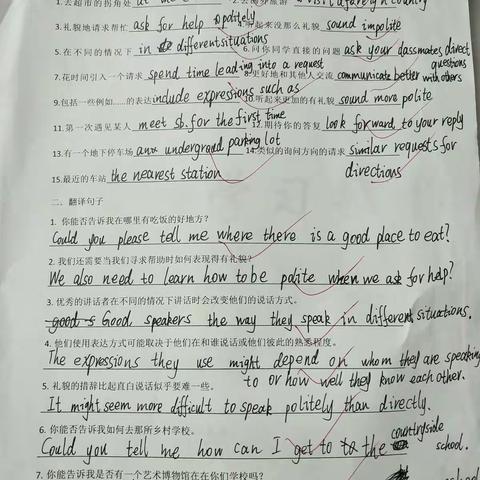 1.去超市的拐角处
3.礼貌地请求帮忙 ask for help politely 4.听起来没那么礼貌 sound impolite
5.在不同的情况下 in different situations 6.问你同学直接的问题 ask your classmates direct questions
7.花时间引入一个请求 spend time leading into a request 8.更好地和其他人交流 communicate better with others
9.包括一些例如……的表达 include expressions such as 10.听起来更加的有礼貌 sound more polite
11.第一次遇见某人 meet sb. for the first time 12.期待你的答复 look forward to your reply
13.有一个地下停车场 underground parking lot 14.类似的询问方向的请求 similar requests for directions
15.最近的车站 the nearest station
二、翻译句子
1. 你能否告诉我在哪里有吃饭的好地方?
Could you please tell me where there is a good place to eat?
2. 我们还需要当我们寻求帮助时如何表现得有礼貌?
We also need to learn how to be polite when we ask for help?
3. 优秀的讲话者在不同的情况下讲话时会改变他们的说话方式。
Good speakers the way they speak in different situations.
4. 他们使用表达方式可能取决于他们在和谁说话或他们彼此的熟悉程度。
The expressions they use might depend on whom they are speaking
to or how well they know each other.
5. 礼貌的措辞比起直白说话似乎要难一些。
It might seem more difficult to speak politely than directly.
6. 你能否告诉我如何去那所乡村学校。
Could you tell me how can I get to the countryside school.
7. 你能告诉我是否有一个艺术博物馆在在你们学校吗?